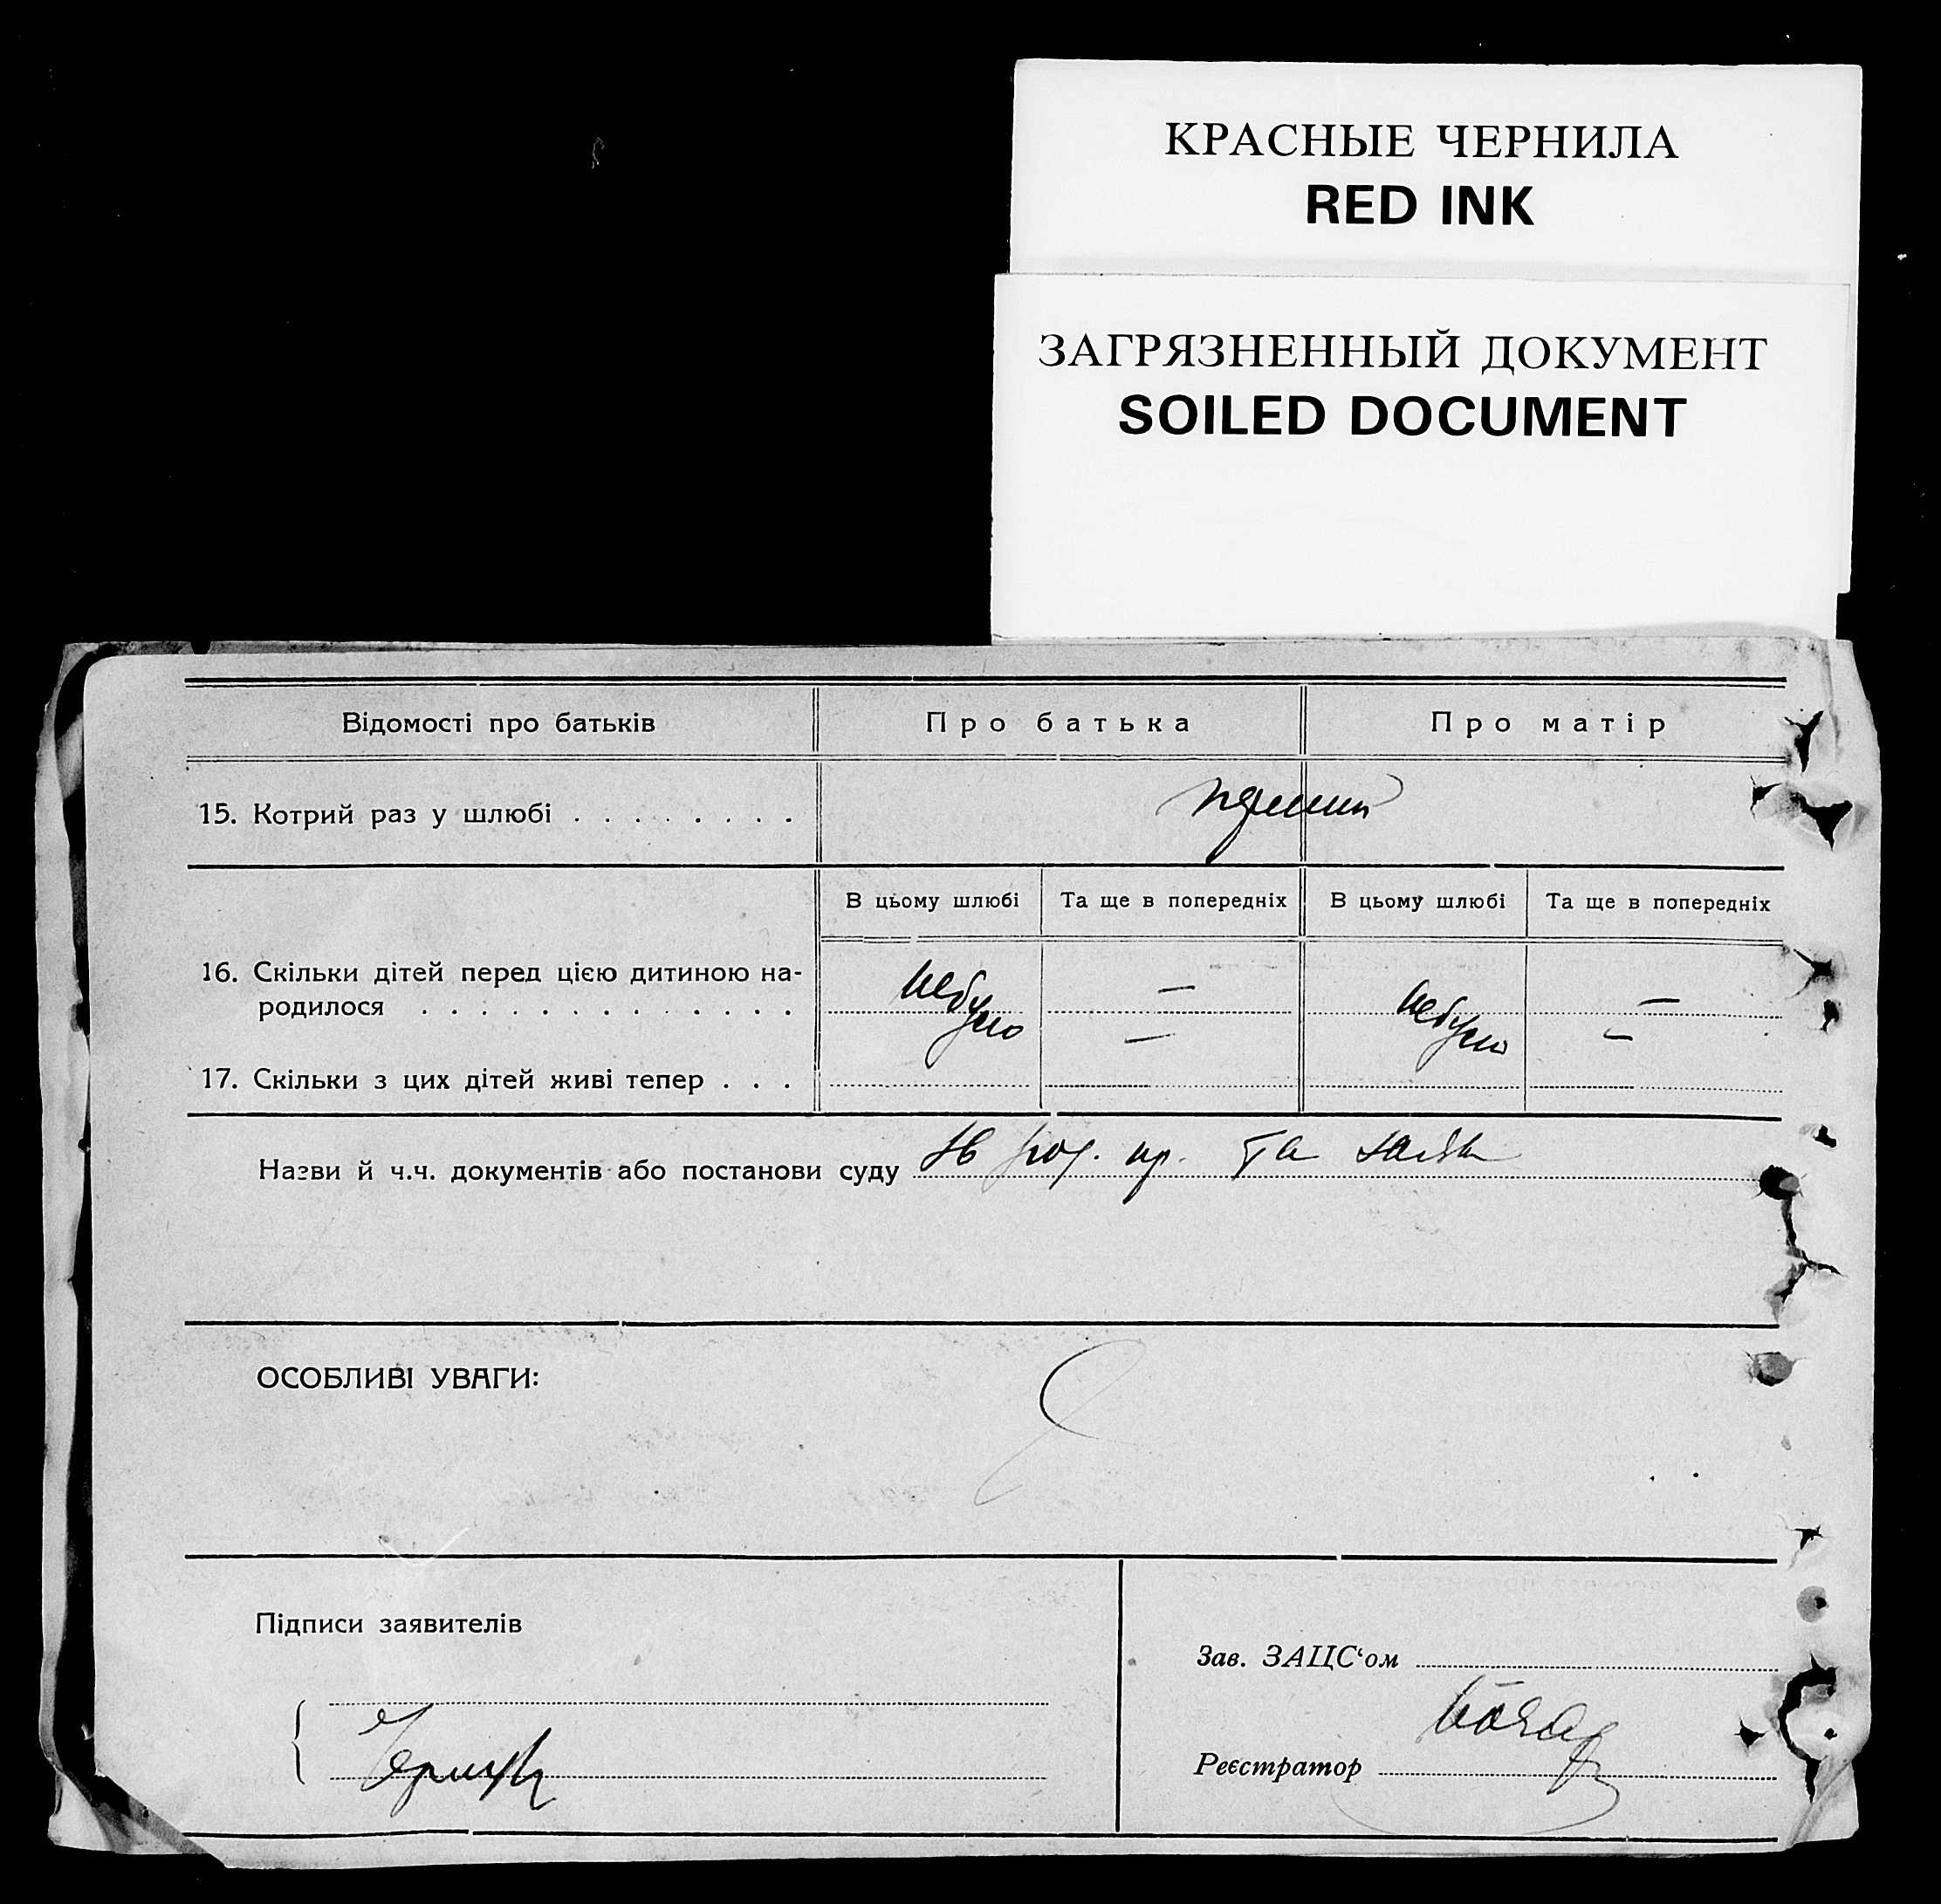 КРАСНЫЕ ЧЕРНИЛА
RED INK
ЗАГРЯЗНЕННЫЙ ДОКУМЕНТ
SOILED DOCUMENT
Відомості про батьків Про батька Про матір
15. Котрий раз у шлюбі . . . . . . . .
В цьому шлюбі Та ще в попередніх В цьому шлюбі Та ще в попередніх
16. Скільки дітей перед цією дитиною на-
родилося . . . . . . . . . . . . . небуло — небуло —
— —
17. Скільки з цих дітей живі тепер . . .
Назви й ч.ч. документів або постанови суду пр. та
ОСОБЛИВІ УВАГИ:
Підписи заявителів
Зав. ЗАЦС‘ом
Реєстратор